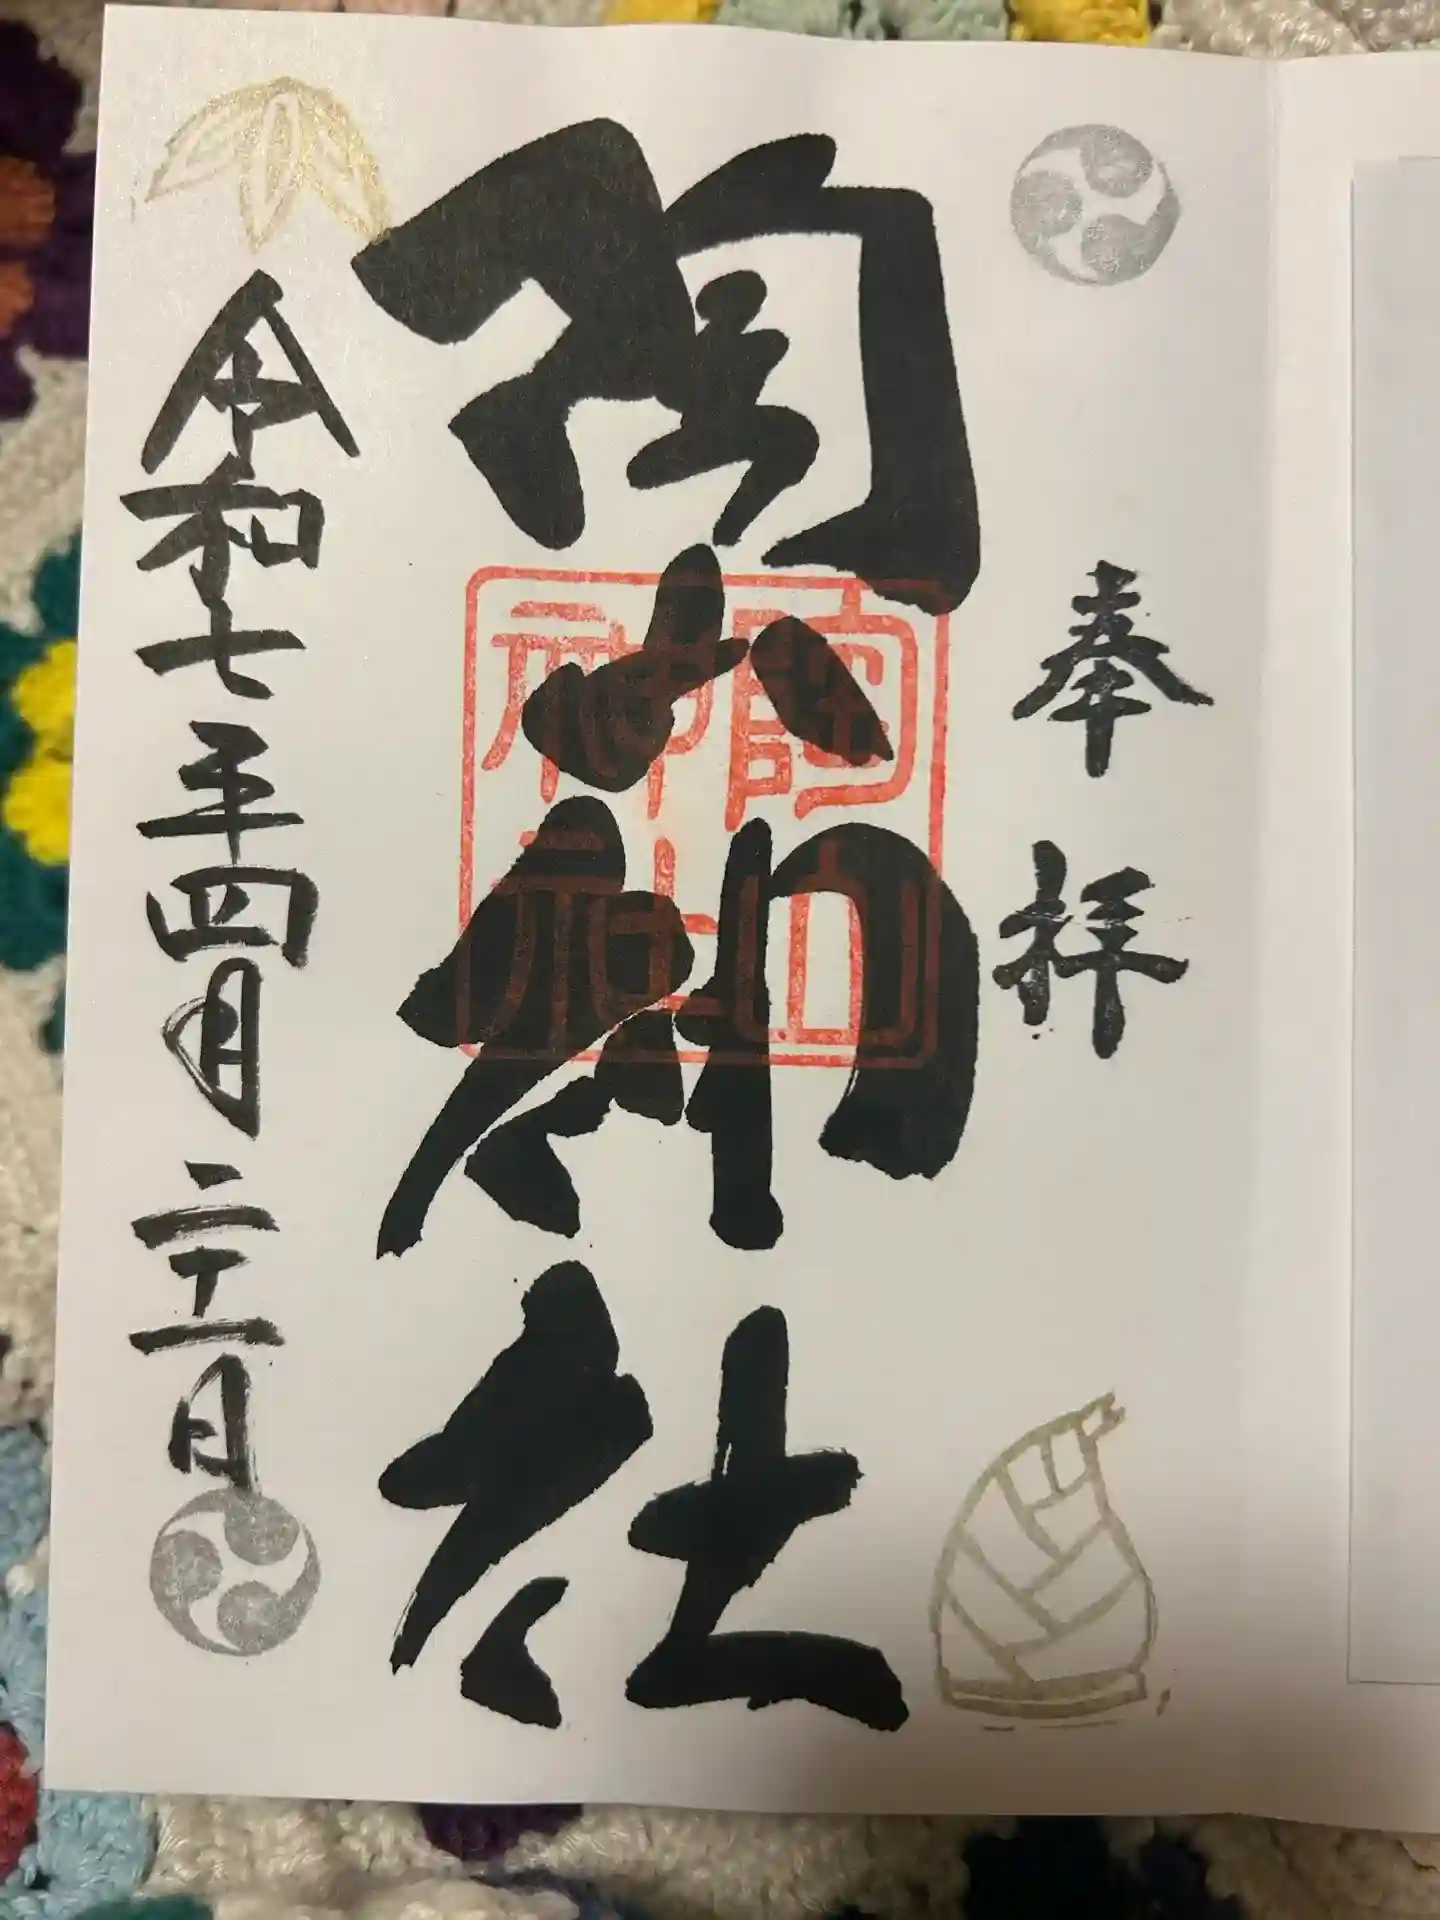 奉拝
陶山神社
陶山
神社
令和七年四月二十一日